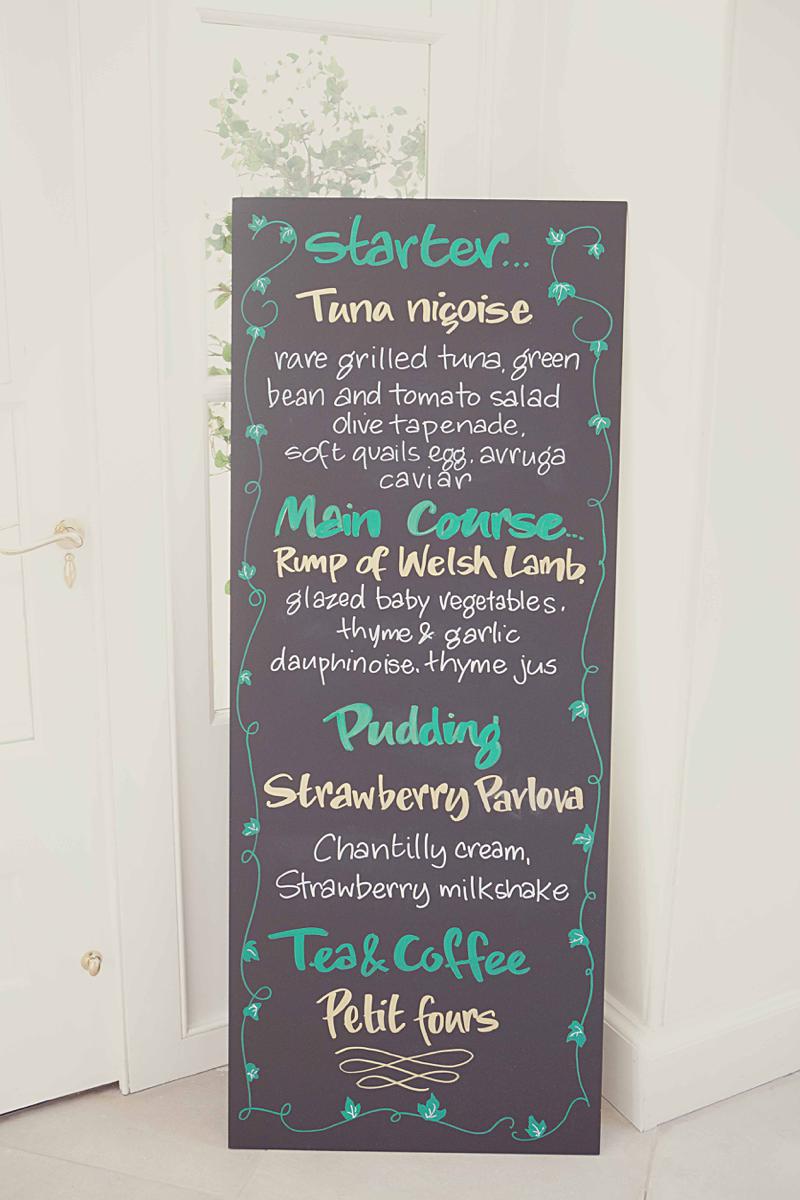 Starter...
Tuna niçoise
rare grilled tuna, green
bean and tomato salad
olive tapenade,
soft quails egg, avruga
caviar
Main Course...
Rump of Welsh Lamb,
glazed baby vegetables,
thyme & garlic
dauphinoise, thyme jus
Pudding
Strawberry Pavlova
Chantilly cream,
Strawberry milkshake
Tea & Coffee
Petit fours